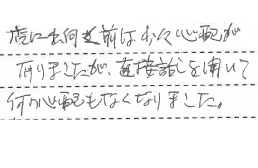 虎に出向く前は少々心配が
有りましたが、直接話しを聞いて
何の心配もなくなりました。